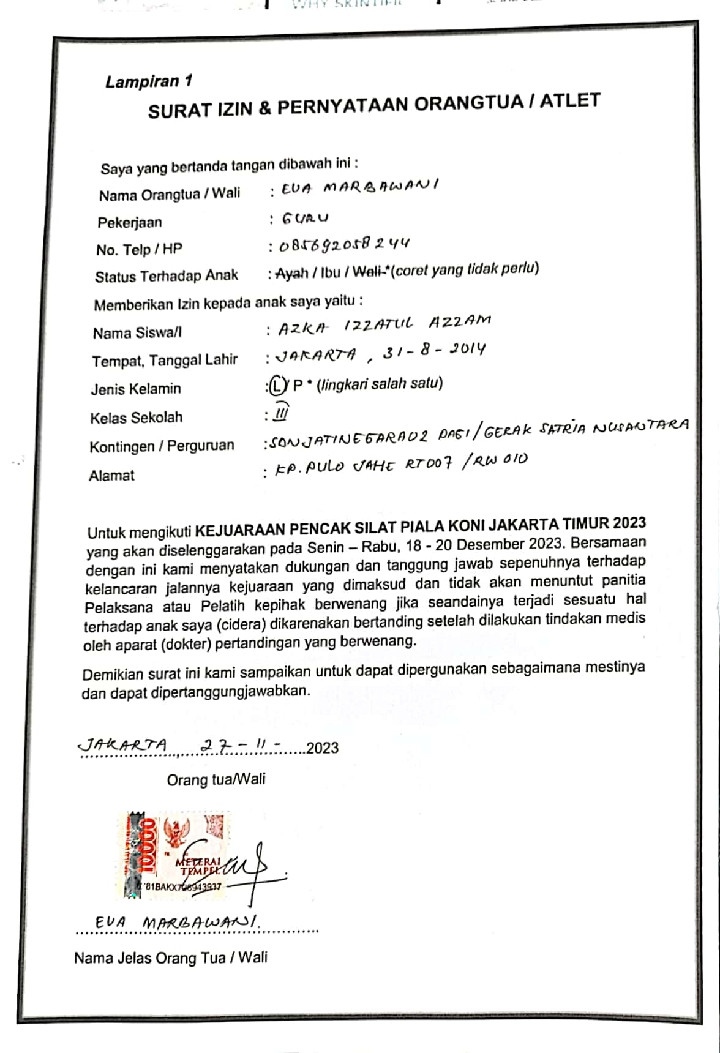 Lampiran 1
SURAT IZIN & PERNYATAAN ORANGTUA / ATLET
Saya yang bertanda tangan dibawah ini :
Nama Orangtua / Wali : EVA MARBAWANI
Pekerjaan : GURU
No. Telp / HP : 085692058244
Status Terhadap Anak : Ayah / Ibu / Wali *(coret yang tidak perlu)
Memberikan Izin kepada anak saya yaitu :
Nama Siswa/I : AZKA IZZATUL AZZAM
Tempat, Tanggal Lahir : JAKARTA , 31-8-2014
Jenis Kelamin : L / P * (lingkari salah satu)
Kelas Sekolah : III
Kontingen / Perguruan : SDN JATINEGARA 02 PAGI / GERAK SATRIA NUSANTARA
Alamat : KP. PULO JAHE RT007 / RW 010
Untuk mengikuti KEJUARAAN PENCAK SILAT PIALA KONI JAKARTA TIMUR 2023
yang akan diselenggarakan pada Senin – Rabu, 18 - 20 Desember 2023. Bersamaan
dengan ini kami menyatakan dukungan dan tanggung jawab sepenuhnya terhadap
kelancaran jalannya kejuaraan yang dimaksud dan tidak akan menuntut panitia
Pelaksana atau Pelatih kepihak berwenang jika seandainya terjadi sesuatu hal
terhadap anak saya (cidera) dikarenakan bertanding setelah dilakukan tindakan medis
oleh aparat (dokter) pertandingan yang berwenang.
Demikian surat ini kami sampaikan untuk dapat dipergunakan sebagaimana mestinya
dan dapat dipertanggungjawabkan.
JAKARTA, 27 - 11 - 2023
Orang tua/Wali
10000
METERAI
TEMPEL
EVA MARBAWANI.
Nama Jelas Orang Tua / Wali